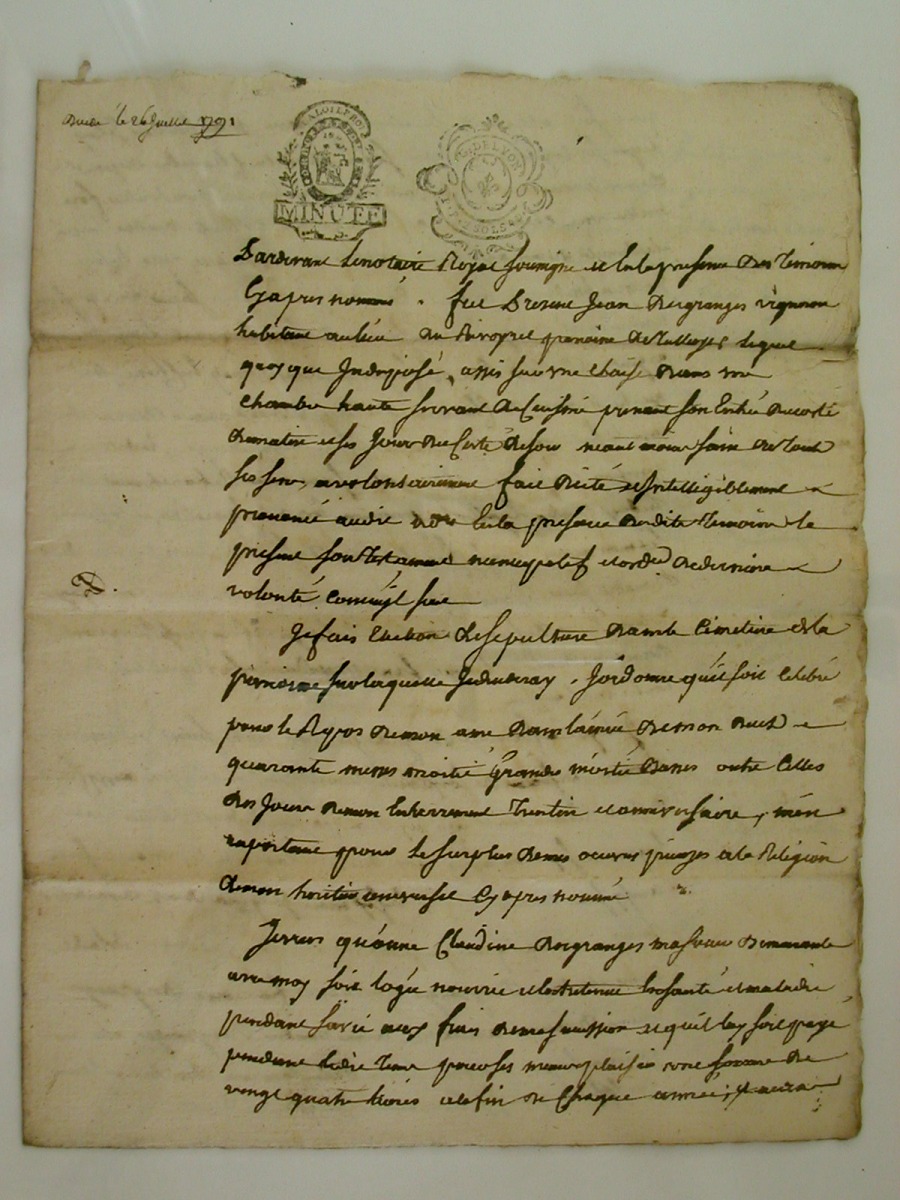 le 26 Juillet 1791
LA LOI LE ROI
MINUTE
SOLS
Pardevant le notaire Royal soussigné et En la presence des Temoins
Cy apres nommés. fut Present Jean Desgranges vigneron
habitant au lieu du paroisse de lequel
quoy que Indisposé, assis sur une chaise dans une
chambre haute servant de Cuisine prenant son Entrée du coté
de matin et ses Jours du Coté de soir neant moins sain de tout
ses sens, a volontairement fait dicté et Intelligiblement
prononcé audit nore En la presence desdits Temoins le
present son Testament nuncupatif et ordce de derniere
volonté Comme s'il suit
Je fais Election de sepulture dans le Cimetiere de la
paroisse sur laquelle Je decederay. J'ordonne qu'il soit Celebré
pour le Repos de mon ame dans l'année de mon deces
quarante messes moitié Grandes moitié Basses outre Celles
des Jours de mon Enterrement Trentin et anniversaire, m'en
raportant pour le surplus de mes oeuvres pieuzes a la Religion
de mon heritier universel Cy apres nommé
Je veux qu'anne Claudine desgranges ma soeur demeurante
avec moy soit logée nourrie et Entretenue En santé et maladie
pendant sa vie aux frais de ma succession et qu'il luy soit payé
pendant ledit Tems pour ses menus plaisirs une somme de
vingt quatre livres a la fin de Chaque année;